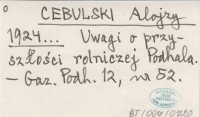 CEBULSKI Alojzy
1924... Uwagi o przy-
szłości rolniczej Podhala.
— Gaz. Podh. 12, nr 52.